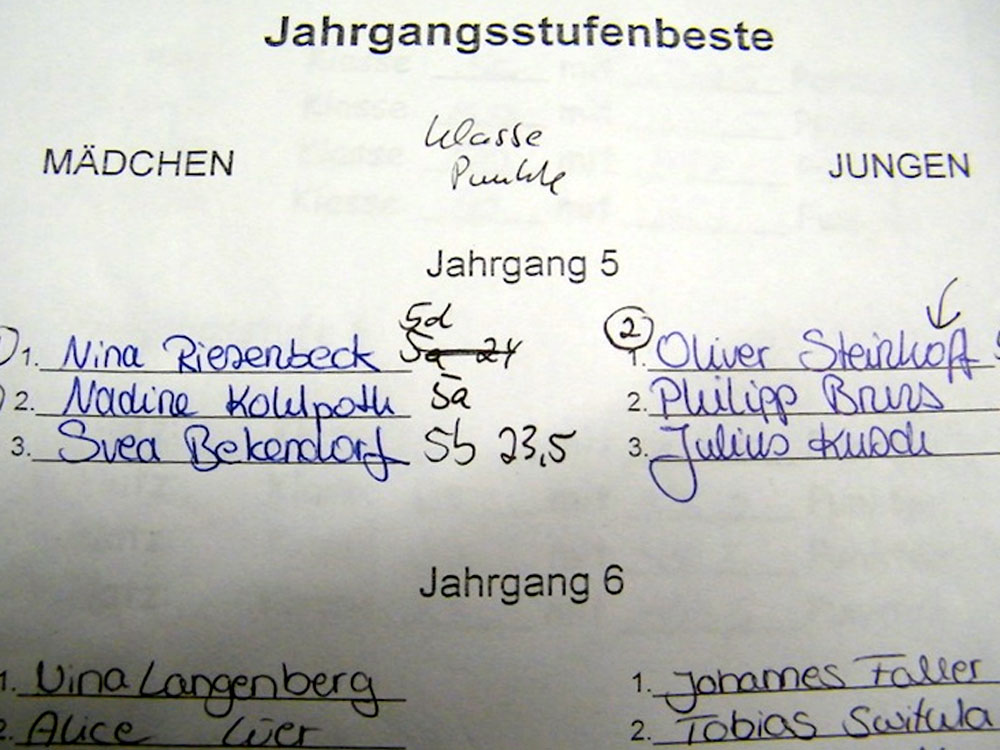 Jahrgangsstufenbeste
Klasse
MÄDCHEN Punkte JUNGEN
Jahrgang 5
5d
1. Nina Riesenbeck 5a 24 ② 1. Oliver Steinhoff
2. Nadine Kohlpoth 5a 2. Philipp Bruns
3. Svea Bekendorf 5b 23,5 3. Julius Kusch
Jahrgang 6
1. Nina Langenberg 1. Johannes Faller
2. Alice Lüer 2. Tobias Switula